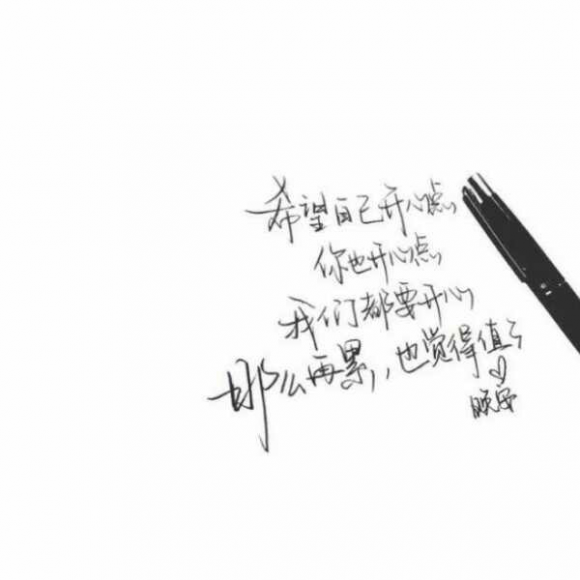 希望自己开心点,
你也开心点
我们都要开心
那么再累,,也觉得值了
♡
晚安